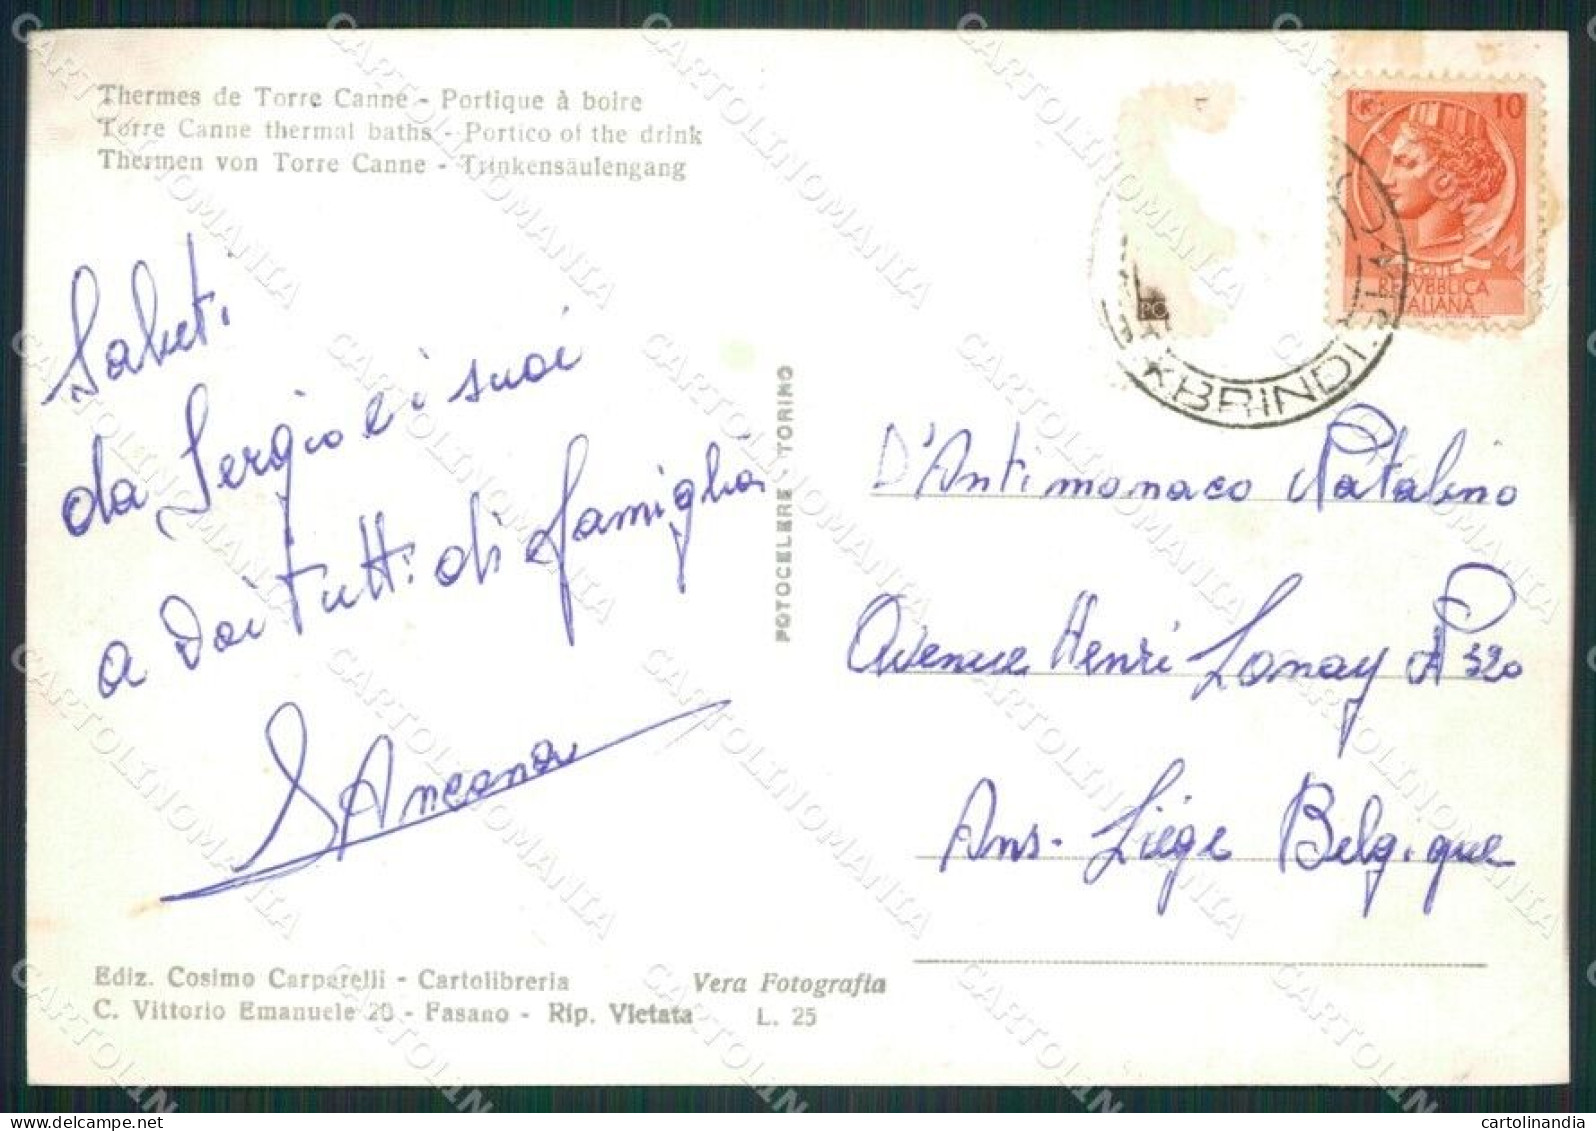 Thermes de Torre Canne - Portique à boire
Torre Canne thermal baths - Portico of the drink
Thermen von Torre Canne - Trinkensäulengang
10
POSTE
REPVBBLICA
ITALIANA
BRINDISI
Saluti
da Sergio e i suoi
a voi tutti di famiglia
S Ancona
FOTOCELERE - TORINO
D'Antimonaco Natalino
Avenue Henri Lonay N 320
Ans - Liége Belgique
Ediz. Cosimo Carparelli - Cartolibreria
C. Vittorio Emanuele 20 - Fasano - Rip. Vietata
Vera Fotografia
L. 25
CARTOLINOMANIA
cartolinandia